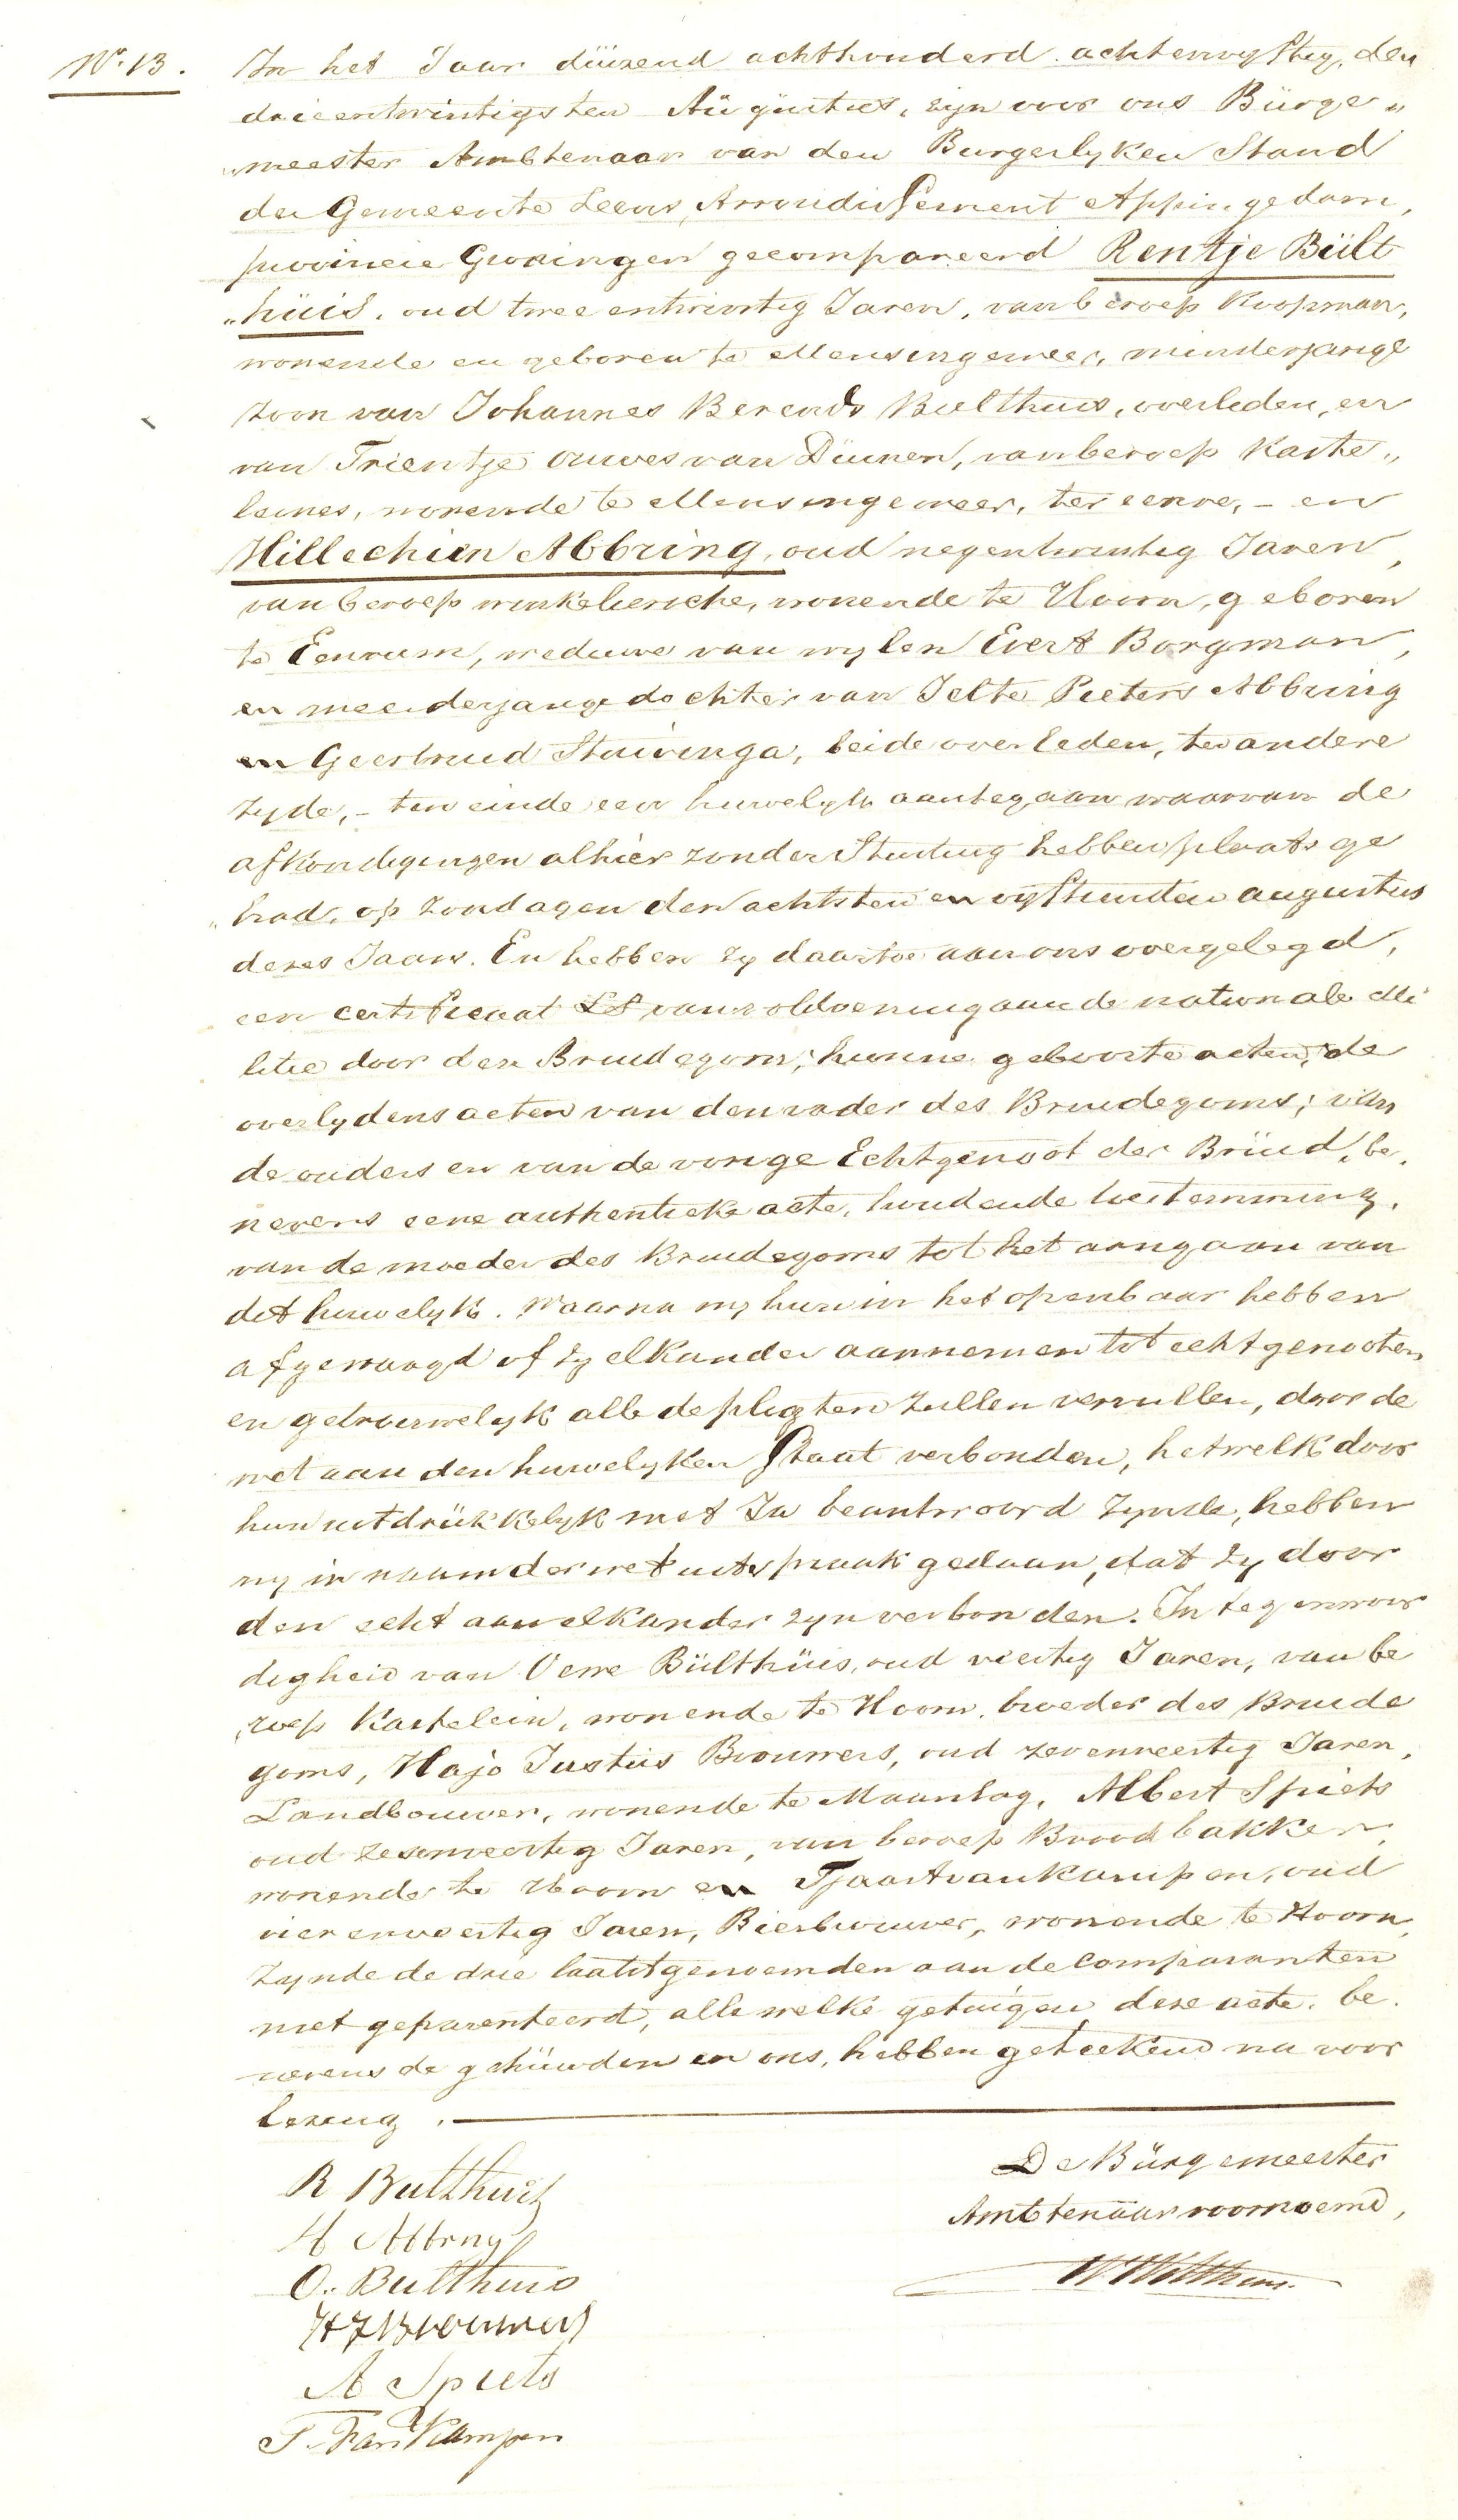 No. 13.
In het Jaar düizend achthonderd achtenvyftig, den
drieentwintigsten Aügüstus, zyn voor ons Bürge„
„meester Ambtenaar van den Burgerlyken Stand
der Gemeente Leens, Arrondissement Appingedam,
provincie Groningen gecompareerd Rentje Bült
„hüis, oud twee entwintig Jaren, van beroep Koopman,
wonende en geboren te Mensingeweer, minderjarige
zoon van Johannes Berends Bulthuis, overleden, en
van Trientje Ouwes van Düinen, van beroep Kaste„
leines, wonende te Mensingeweer, ter eenre, – en
Hillechien Abbring, oud negentwintig Jaren,
van beroep winkeliersche, wonende te Hoorn, geboren
te Eenrum, weduwe van wylen Evert Borgman,
en meerderjarige dochter van Jelte Pieters Abbring
en Geertruid Stuivinga, beide overleden, ter andere
zyde, – ten einde een huwelyk aantegaan waarvan de
afkondigingen alhier zonder Stuiting hebben plaats ge
„had, op zondagen den achtsten en vyftienden augustus
dezes Jaars. En hebben zy daartoe aan ons overgelegd,
een certificaat van voldoening aan de nationale Mi
litie door den Bruidegom; hunne geboorte acten, de
overlydens acten van den vader des Bruidegoms; van
de ouders en van de vorige Echtgenoot der Brüid, be„
nevens eene authentieke acte, houdende toestemming,
van de moeder des Bruidegoms tot het aangaan van
dit huwelyk. Waarna wy hun in het openbaar hebben
afgevraagd of zy elkander aannemen tot echtgenooten
en getrouwelyk alle de pligten zullen vervullen, door de
wet aan den huwelyken Staat verbonden, hetwelk door
hun uitdrükkelyk met Ja beantwoord zynde, hebben
wy in naam der wet uitspraak gedaan, dat zy door
den echt aan elkander zyn verbonden. In tegenwoor
digheid van Ouwe Bülthüis, oud veertig Jaren, van be
„roep Kastelein, wonende te Hoorn, broeder des Bruide
goms, Hajo Justus Brouwers, oud zevenveertig Jaren,
Landbouwer, wonende te Maarslag, Albert Spiets
oud zesenveertig Jaren, van beroep Broodbakker,
wonende te Hoorn en Tjaart van Kampen, oud
vierenveertig Jaren, Bierbrouwer, wonende te Hoorn,
zynde de drie laatstgenoemden aan de Comparanten
niet geparenteerd, alle welke getuigen deze acte, be„
nevens de gehüwden en ons, hebben geteekend na voor
lezing.
R Bulthuis
H Abbring
O. Bulthuis
HJ Brouwers
A Spiets
T. Van Kampen
De Bürgemeester
Ambtenaar voornoemd,